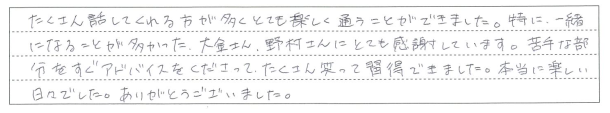 たくさん話してくれる方が多くとても楽しく通うことができました。特に、一緒
になることが多かった、大金さん、野村さんにとても感謝しています。苦手な部
分をすぐアドバイスをくださって、たくさん笑って習得できました。本当に楽しい
日々でした。ありがとうございました。